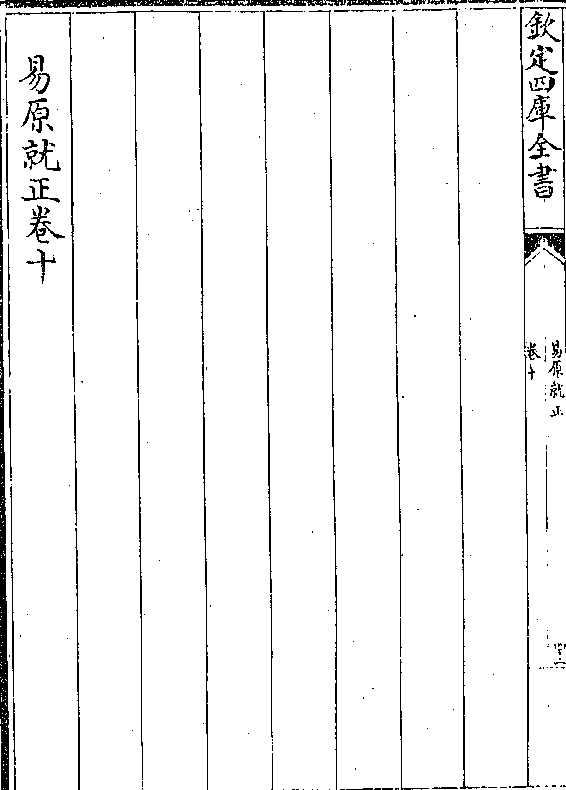 欽定四庫全書
易原就正
卷十
易原就正卷十